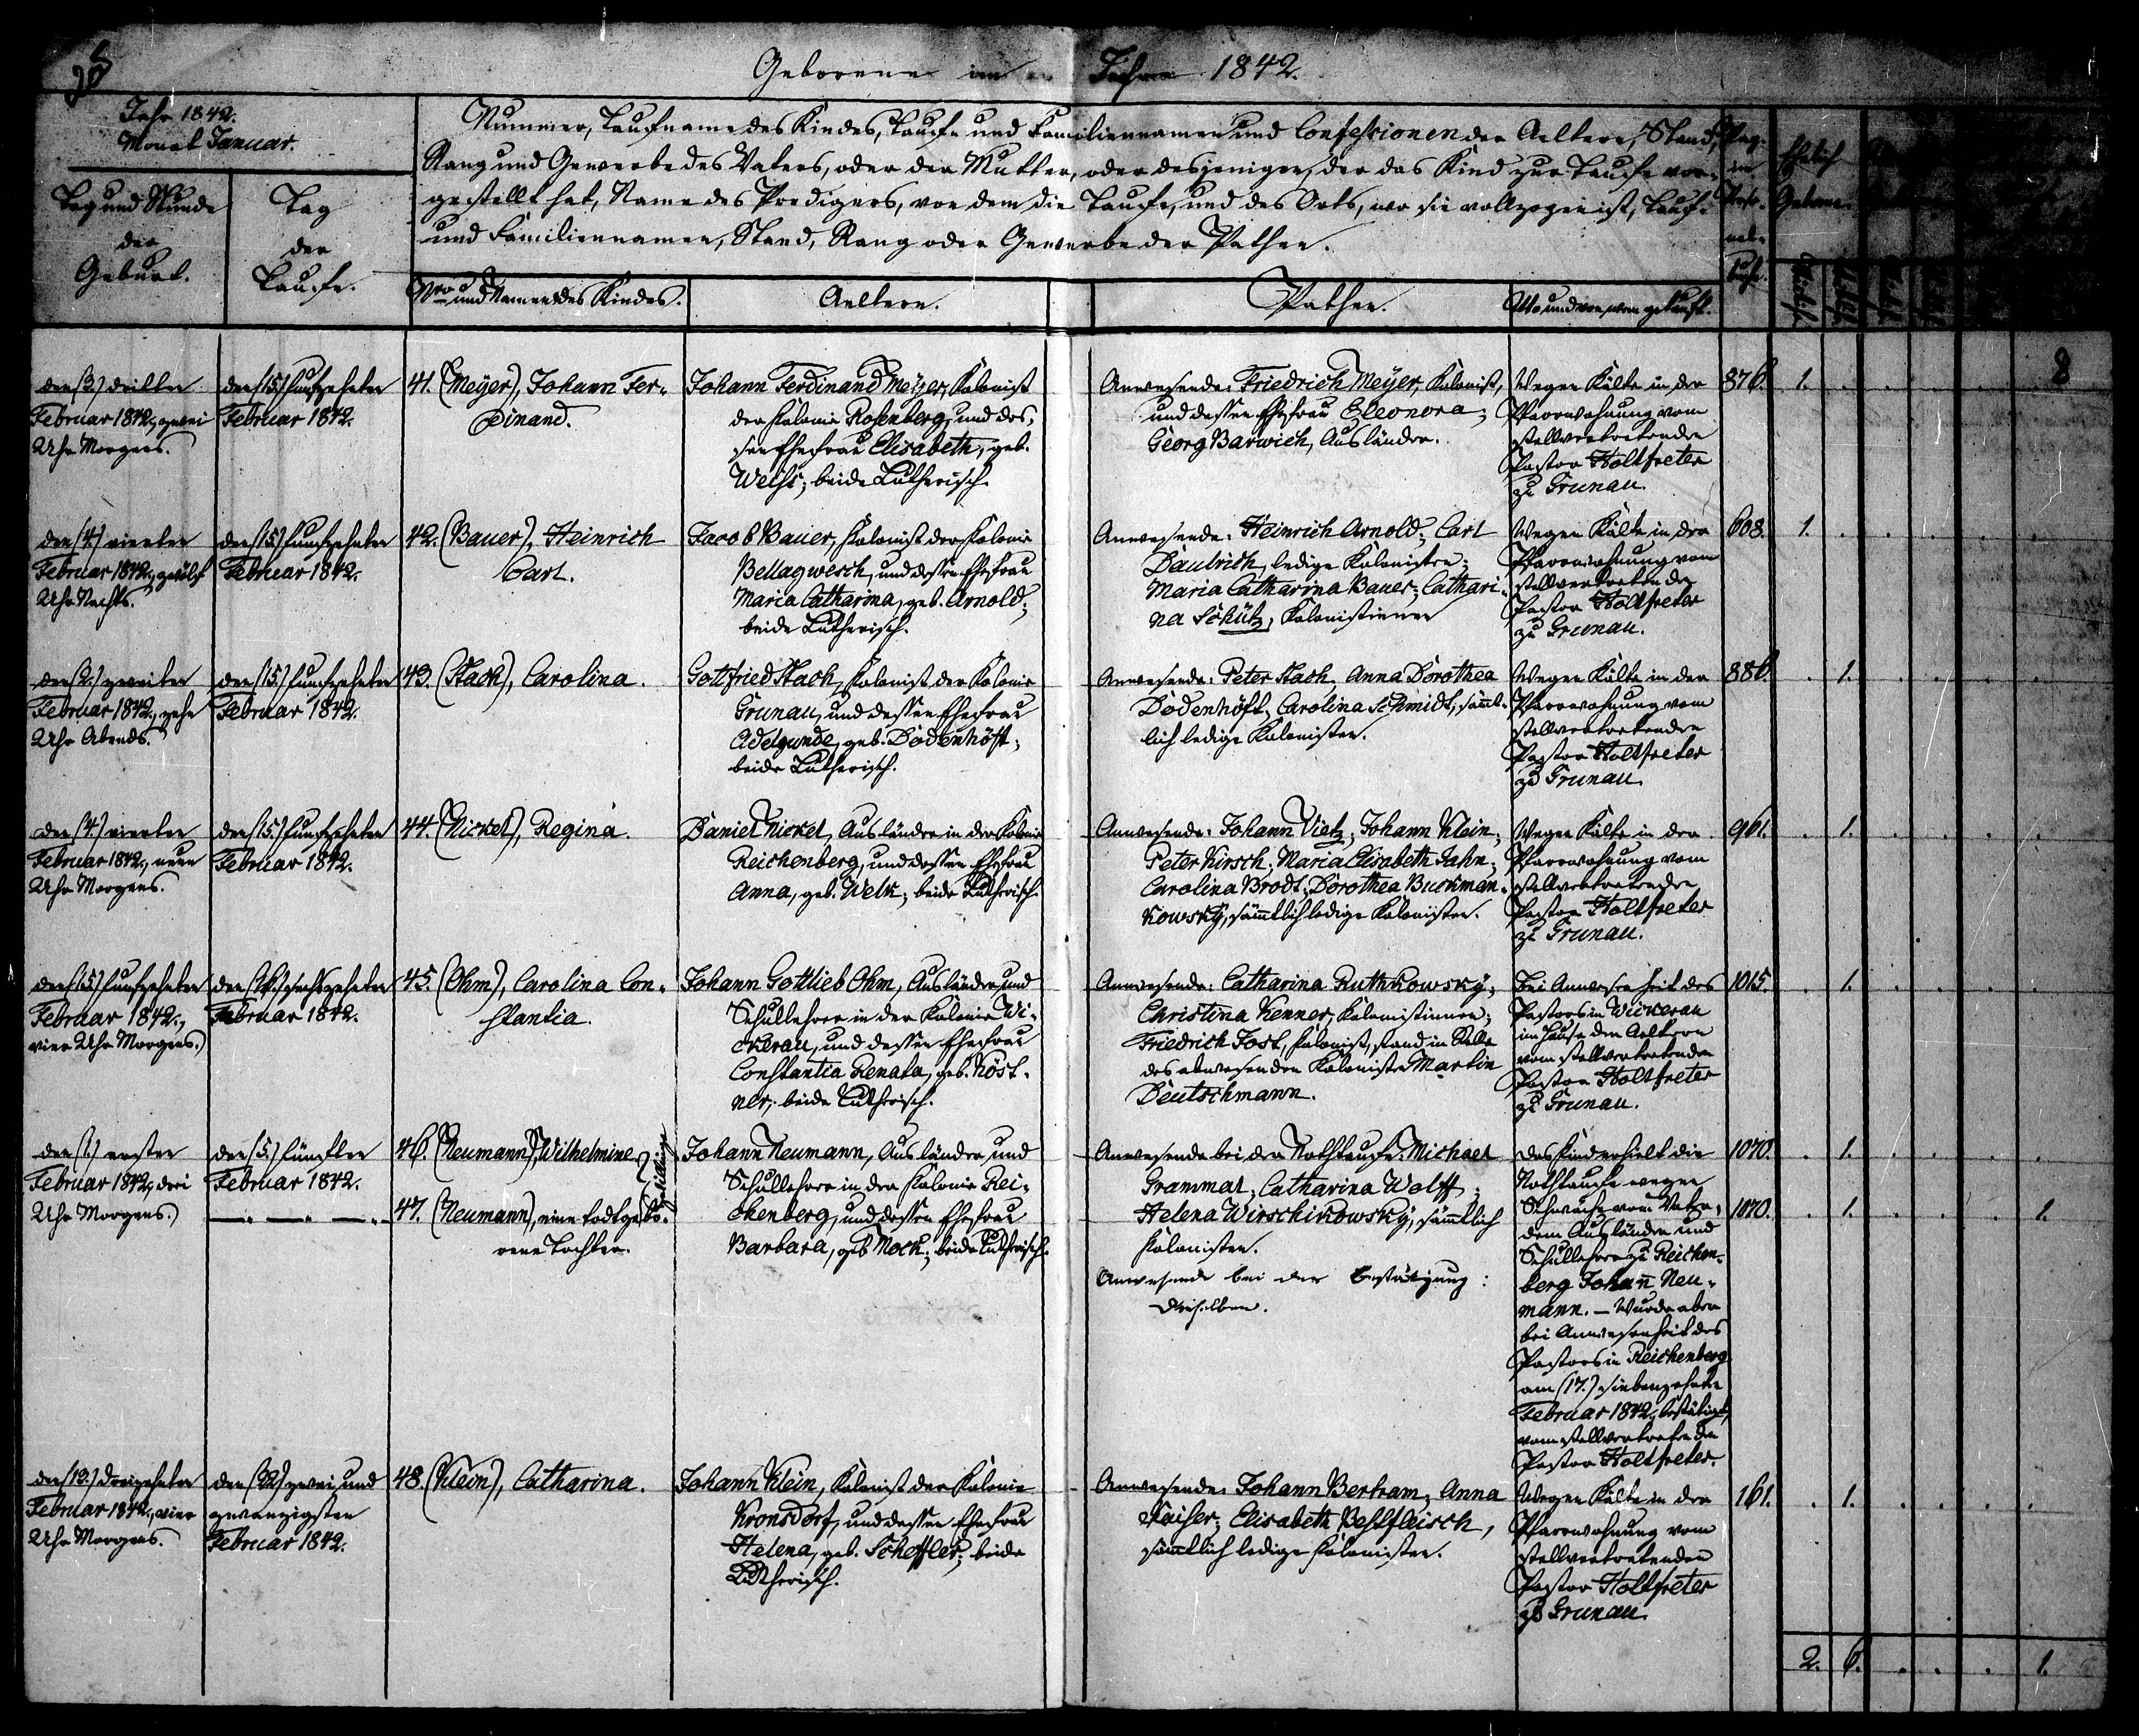 Geborene im Jahre 1842.
Jahr 1842.
Monat Januar.
Tag und Stunde
der
Geburt.
Tag
der
Taufe.
Nummer, Taufname des Kindes, Taufe und Familiennamen und Confessionen der Aeltern, Stand,
Rang und Gewerbe des Vaters, oder der Mutter, oder desjenigen, der das Kind zur Taufe vor-
gestellt hat, Name des Predigers, von dem die Taufe, und des Orts, wo sie vollzogen ist, Tauf-
und Familiennamen, Stand, Rang oder Gewerbe der Pathen.
Nro und Namen des Kindes.
Aeltern.
Pathen.
Wo und von wem getauft.
Ehelich
Geborne
den (3.) dritten
Februar 1842., zwei
Uhr Morgens.
den (15.) funfzehnten
Februar 1842.
41. (Meyer), Johann Fer-
dinand.
Johann Ferdinand Meyer, Kolonist
der Kolonie Rosenberg, und des-
sen Ehefrau Elisabeth, geb.
Weihs; beide Lutherisch.
Anwesende: Friedrich Meyer, Kolonist,
und dessen Ehefrau Eleonora;
Georg Barwich, Ausländer.
Wegen Kälte in der
Pfarrwohnung vom
stellvertretenden
Pastor Holtfreter
zu Grunau.
876. 1. 8
den (4.) vierten
Februar 1842., zwölf
Uhr Nachts.
den (15.) funfzehnten
Februar 1842.
42. (Bauer), Heinrich
Carl.
Jacob Bauer, Kolonist der Kolonie
Bellagwesch, und dessen Ehefrau
Maria Catharina, geb. Arnold;
beide Lutherisch.
Anwesende: Heinrich Arnold; Carl
Daubrich, ledige Kolonisten;
Maria Catharina Bauer; Cathari-
na Schütz, Kolonistinnen
Wegen Kälte in der
Pfarrwohnung vom
stellvertretenden
Pastor Holtfreter
zu Grunau.
608. 1.
den (2.) zweiten
Februar 1842., zehn
Uhr Abends.
den (15.) funfzehnten
Februar 1842.
43. (Stach), Carolina.
Gottfried Stach, Kolonist der Kolonie
Grunau, und dessen Ehefrau
Adelgunde, geb. Dodenhöft;
beide Lutherisch.
Anwesende: Peter Stach, Anna Dorothea
Dodenhöft, Carolina Schmidt, sämt-
lich ledige Kolonisten.
Wegen Kälte in der
Pfarrwohnung vom
stellvertretenden
Pastor Holtfreter
zu Grunau.
886. 1.
den (4.) vierten
Februar 1842., neun
Uhr Morgens.
den (15.) funfzehnten
Februar 1842.
44. (Nickel), Regina.
Daniel Nickel, Ausländer in der Kolonie
Reichenberg, und dessen Ehefrau
Anna, geb. Welk; beide Lutherisch.
Anwesende: Johann Vietz; Johann Klein;
Peter Kirsch; Maria Elisabeth Jahn;
Carolina Brodt; Dorothea Buckman-
kowsky, sämtlich ledige Kolonisten.
Wegen Kälte in der
Pfarrwohnung vom
stellvertretenden
Pastor Holtfreter
zu Grunau.
961. 1.
den (15.) funfzehnten
Februar 1842.,
vier Uhr Morgens.
den (16.) sechszehnten
Februar 1842.
45. (Ohm), Carolina Con-
stantia.
Johann Gottlieb Ohm, Ausländer, und
Schullehrer in der Kolonie Wi-
ckerau, und dessen Ehefrau
Constantia Renata, geb. Köst-
ner; beide Lutherisch.
Anwesende: Catharina Ruthkowsky;
Christina Kenner, Kolonistinnen;
Friedrich Jost, Kolonist, stand in Stelle
des abwesenden Kolonisten Martin
Deutschmann.
Bei Anwesenheit des
Pastors in Wickerau
im Hause der Aeltern
vom stellvertretenden
Pastor Holtfreter
zu Grunau.
1015. 1.
den (1.) ersten
Februar 1842., drei
Uhr Morgens.
den (5.) fünften
Februar 1842.
46. (Neumann), Wilhelmine
47. (Neumann), eine todtgebo-
rene Tochter.
Zwillinge
Johann Neumann, Ausländer und
Schullehrer in der Kolonie Rei-
chenberg, und dessen Ehefrau
Barbara, geb. Nock; beide Lutherisch.
Anwesende bei der Nothtaufe: Michael
Grammat; Catharina Wolff;
Helena Wirschikowsky, sämtlich
Kolonisten.
Anwesende bei der Bestätigung:
Dieselben.
Das Kind erhielt die
Nothtaufe wegen
Schwäche vom Vater,
dem Ausländer und
Schullehrer zu Reichen-
berg Johann Neu-
mann. – Wurde aber
bei Anwesenheit des
Pastors in Reichenberg
am (17.) siebenzehnten
Februar 1842., bestätigt
vom stellvertretenden
Pastor Holtfreter.
1070. 1.
1070. 1. 1.
den (13.) dreizehnten
Februar 1842., vier
Uhr Morgens.
den (22.) zwei und
zwanzigsten
Februar 1842.
48. (Klein), Catharina.
Johann Klein, Kolonist der Kolonie
Kronsdorf, und dessen Ehefrau
Helena, geb. Scheffler; beide
Lutherisch.
Anwesende: Johann Bertram; Anna
Kaiser; Elisabeth Behlfleisch,
sämtlich ledige Kolonisten.
Wegen Kälte in der
Pfarrwohnung vom
stellvertretenden
Pastor Holtfreter
zu Grunau.
161. 1.
2. 6. 1.